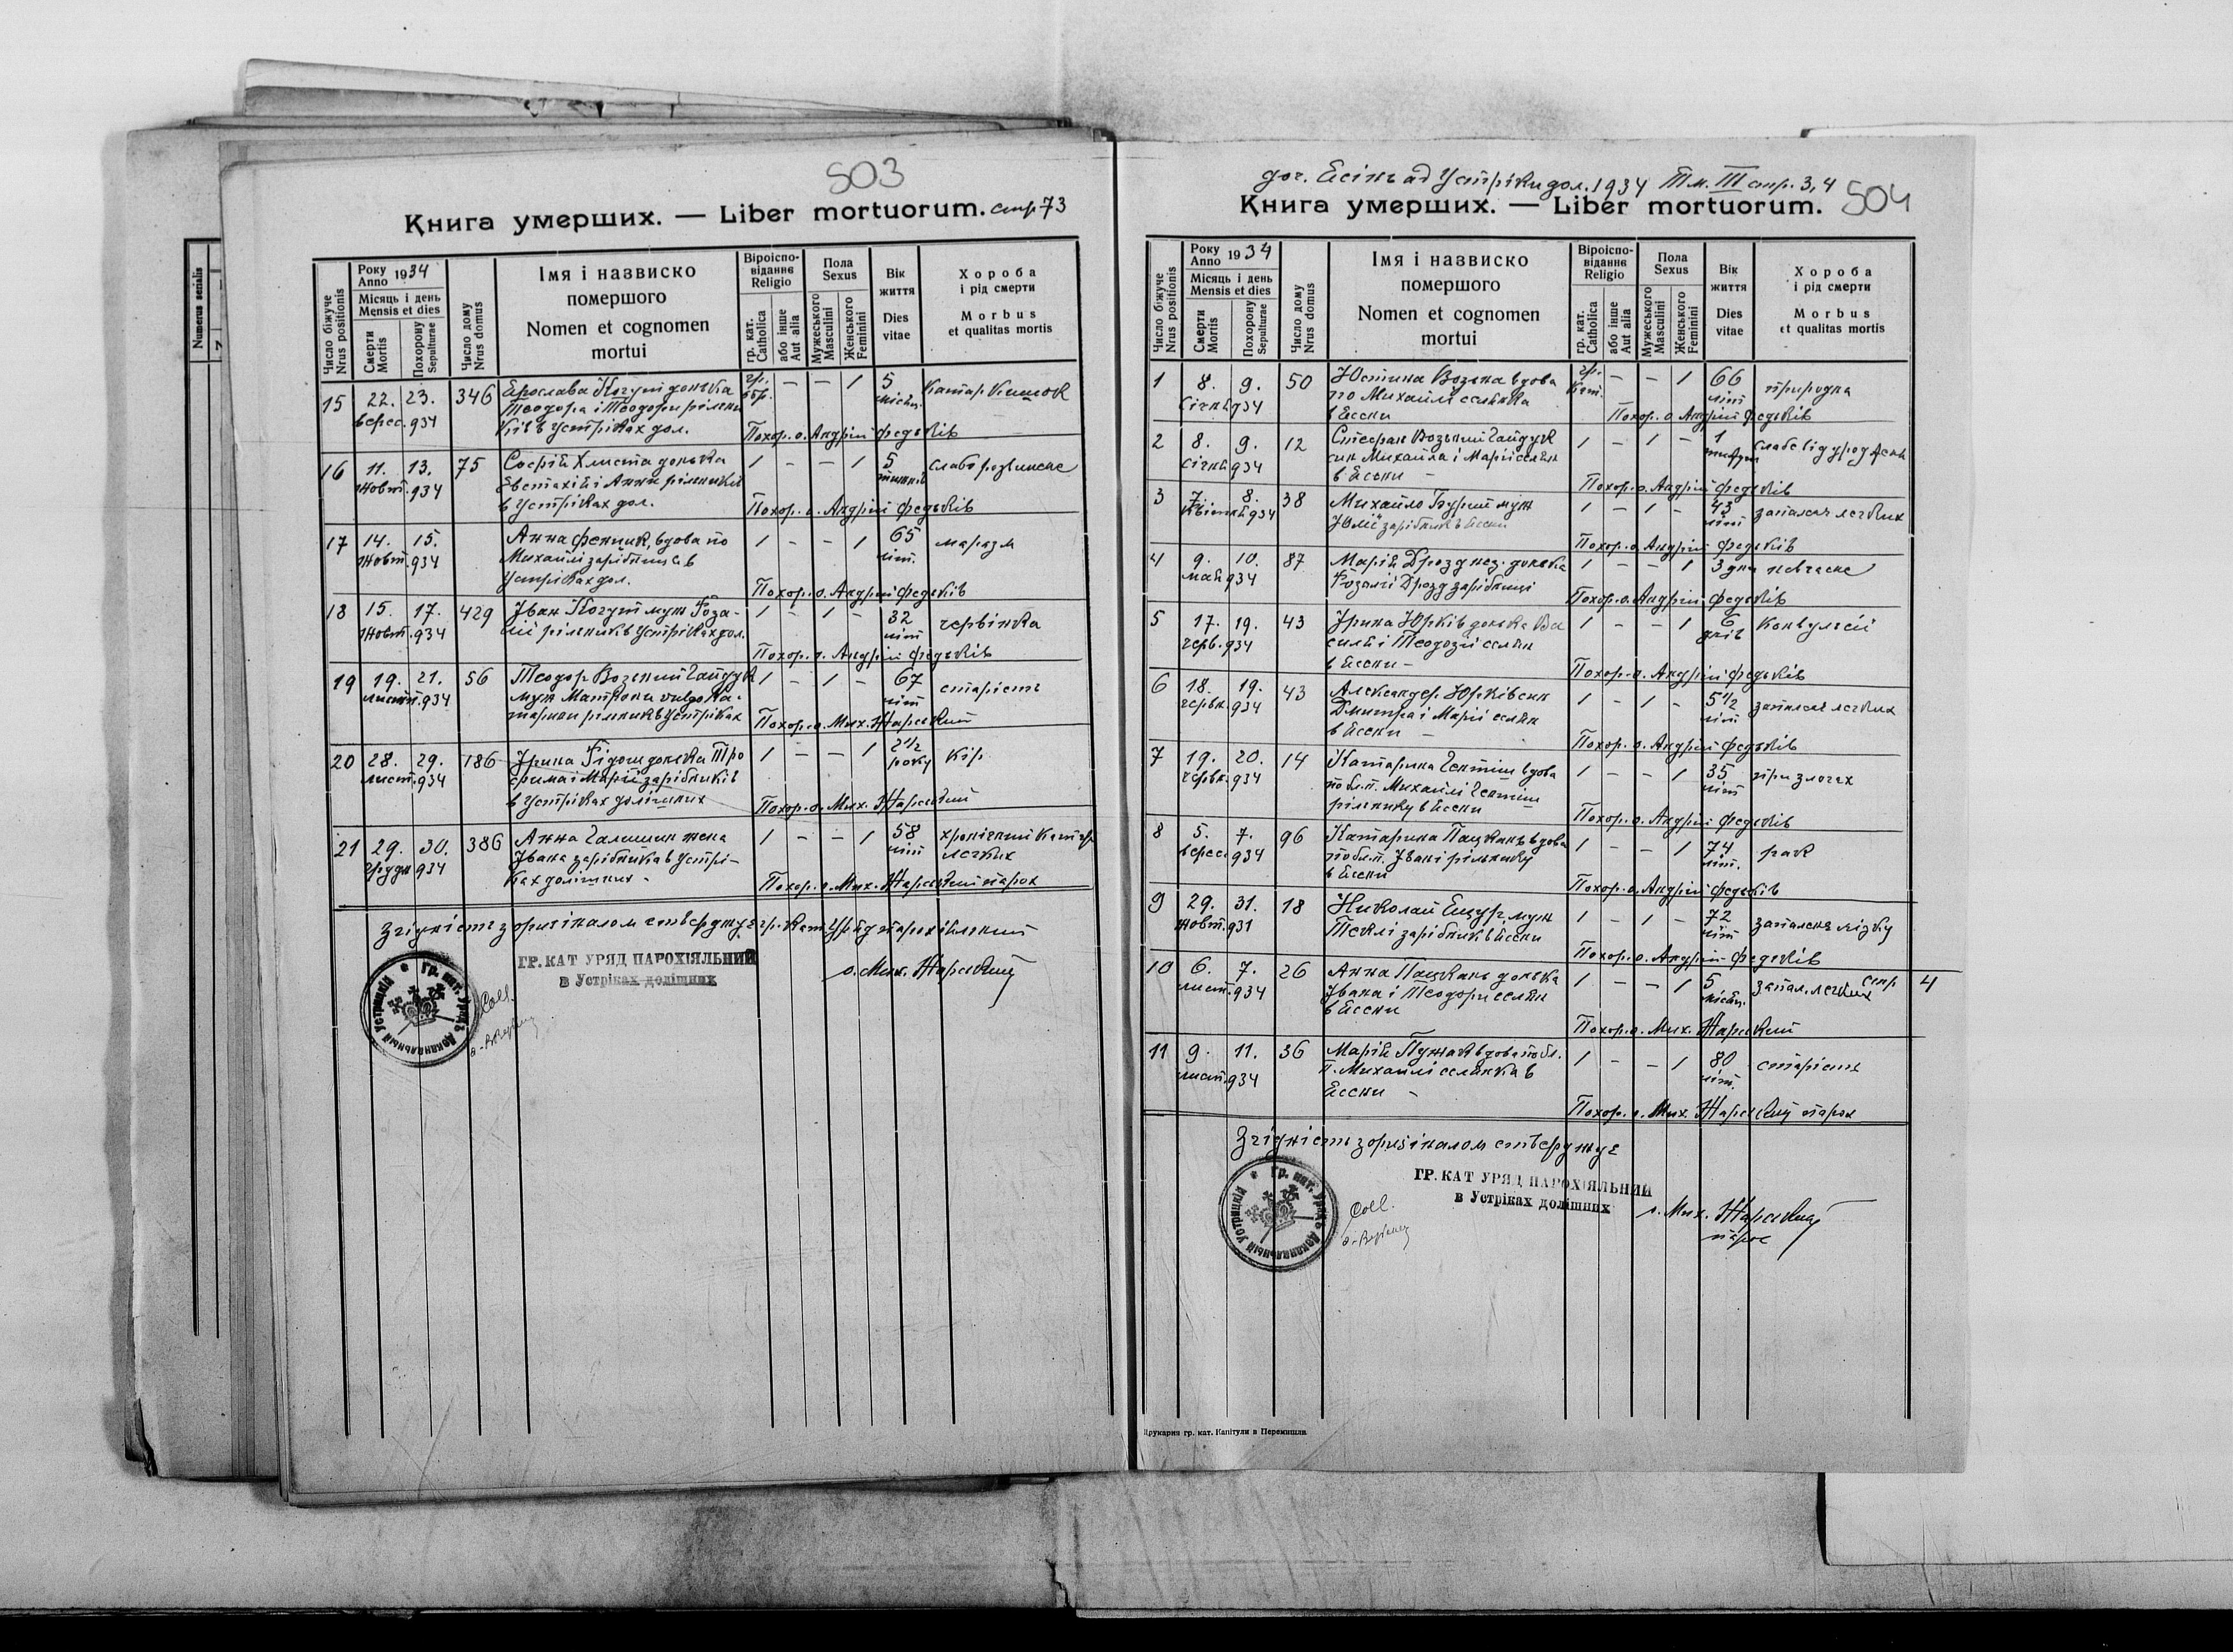 503
Книга умерших. — Liber mortuorum. стр. 73
Число біжуче Nrus positionis
Року Anno 1934
Місяць і день Mensis et dies
Смерти Mortis
Похорону Sepulturae
Число дому Nrus domus
Імя і назвиско помершого
Nomen et cognomen mortui
Віроіспо-відання Religio
гр. кат. Catholica
або інше Aut alia
Пола Sexus
Мужеського Masculini
Женського Feminini
Вік життя Dies vitae
Хороба і рід смерти
Morbus et qualitas mortis
15 22. 23. 346 Ярослава Когут донька гр. — — 1 5 катар кишок
верес. 934 Теодора і Теодори рільни обр. місяц.
ків в Устріках дол. Похор. о. Андрій Федьків
16 11. 13. 75 Софія Хлиста донька 1 - — 1 5 слабо розвинене
жовт. 934 Евстахія і Анни рільників тижнів
в Устріках дол. Похор. о. Андрій Федьків
17 14. 15. Анна Феник, вдова по 1 - — 1 65 маразм
жовт. 934 Михайлі зарібниця в літ.
Устріках дол. Похор. о. Андрій Федьків
18 15. 17. 429 Іван Когут муж Роза- 1 - 1 — 32 червінка
жовт. 934 лії рільник в Устріках дол. літ
Похор. о. Андрій Федьків
19 19. 21. 56 Теодор Возьний Гайдук 1 - 1 — 67 старість
лист. 934 муж Матрони vulgo Ка- літ
тарини рільник в Устріках Похор. о. Мих. Жарский
20 28. 29. 186 Ірина Гідош донька Тро 1 — — 1 2 1/2 кір
лист. 934 фима і Марії зарібників року
в Устріках долішних Похор. о. Мих. Жарский
21 29. 30. 386 Анна Галишин жена 1 - — 1 58 хронічний катар
грудн 934 Івана зарібника в Устрі- літ легких
ках долішних - Похор. о. Мих. Жарский парох
Згідність з оригіналом стверджує гр. кат. Уряд парохіяльний
ГР. КАТ УРЯД ПАРОХІЯЛЬНИЙ
в Устріках долішних
о. Мих. Жарский
Coll.
доч. Ясінь ад Устріки дол. 1934 Тм. III стр. 3, 4
504
Книга умерших. — Liber mortuorum.
Число біжуче Nrus positionis
Року Anno 1934
Місяць і день Mensis et dies
Смерти Mortis
Похорону Sepulturae
Число дому Nrus domus
Імя і назвиско помершого
Nomen et cognomen mortui
Віроіспо-відання Religio
гр. кат. Catholica
або інше Aut alia
Пола Sexus
Мужеського Masculini
Женського Feminini
Вік життя Dies vitae
Хороба і рід смерти
Morbus et qualitas mortis
1 8. 9. 50 Юстина Возьна вдова гр. — — 1 66 природна
січня 934 по Михайлі селянка кат. літ
в Ясени Похор. о. Андрій Федьків
2 8. 9. 12 Стефан Возьний Гайдук 1 - 1 — 1 слабе від уродженя
січня 934 син Михайла і Марії селян
в Ясени — Похор. о. Андрій Федьків
3 7. 8. 38 Михайло Бурий муж 1 - 1 - 43 запаленя легких
квітня 934 Юлії зарібник в Ясени літ
Похор. о. Андрій Федьків
4 9. 10. 87 Марія Дрозд нез. донька 1 — — 1 3 дни невчасне
мая 934 Розалії Дрозд зарібниці
Похор. о. Андрій Федьків
5 17. 19. 43 Ірина Юрків донька Ва 1 - — 1 6 конвульсії
черв. 934 силя і Теодозії селян днів
в Ясени — Похор. о. Андрій Федьків
6 18. 19. 43 Александер Юрків син 1 - 1 - 5 1/2 запаленя легких
червн. 934 Дмитра і Марії селян літ
в Ясени — Похор. о. Андрій Федьків
7 19. 20. 14 Катарина Гентіш вдова 1 — — 1 35 при злогах
червн. 934 по бл. п. Михайлі Гентіш літ
рільнику в Ясени Похор. о. Андрій Федьків
8 5. 7. 96 Катарина Пацкань вдова 1 — — 1 74 рак
верес. 934 по бл. п. Івані рільнику літ.
в Ясени Похор. о. Андрій Федьків
9 29. 31. 18 Николай Ещур, муж 1 - 1 — 72 запаленя мізку
жовт. 931 Теклі зарібник в Ясени літ
Похор. о. Андрій Федьків
10 6. 7. 26 Анна Пацкань донька 1 — — 1 5 запал. легких стр. 4
лист. 934 Івана і Теодори селян місяц.
в Ясени Похор. о. Мих. Жарский
11 9. 11. 36 Марія Пужак вдова по бл. 1 - — 1 80 старість
лист. 934 п. Михайлі селянка в літ.
Ясени — Похор. о. Мих. Жарский парох
Згідність з оригіналом стверджує
ГР. КАТ УРЯД ПАРОХІЯЛЬНИЙ
в Устріках долішних
о. Мих. Жарский
парох
Coll.
Друкарня гр. кат. Капітули в Перемишли